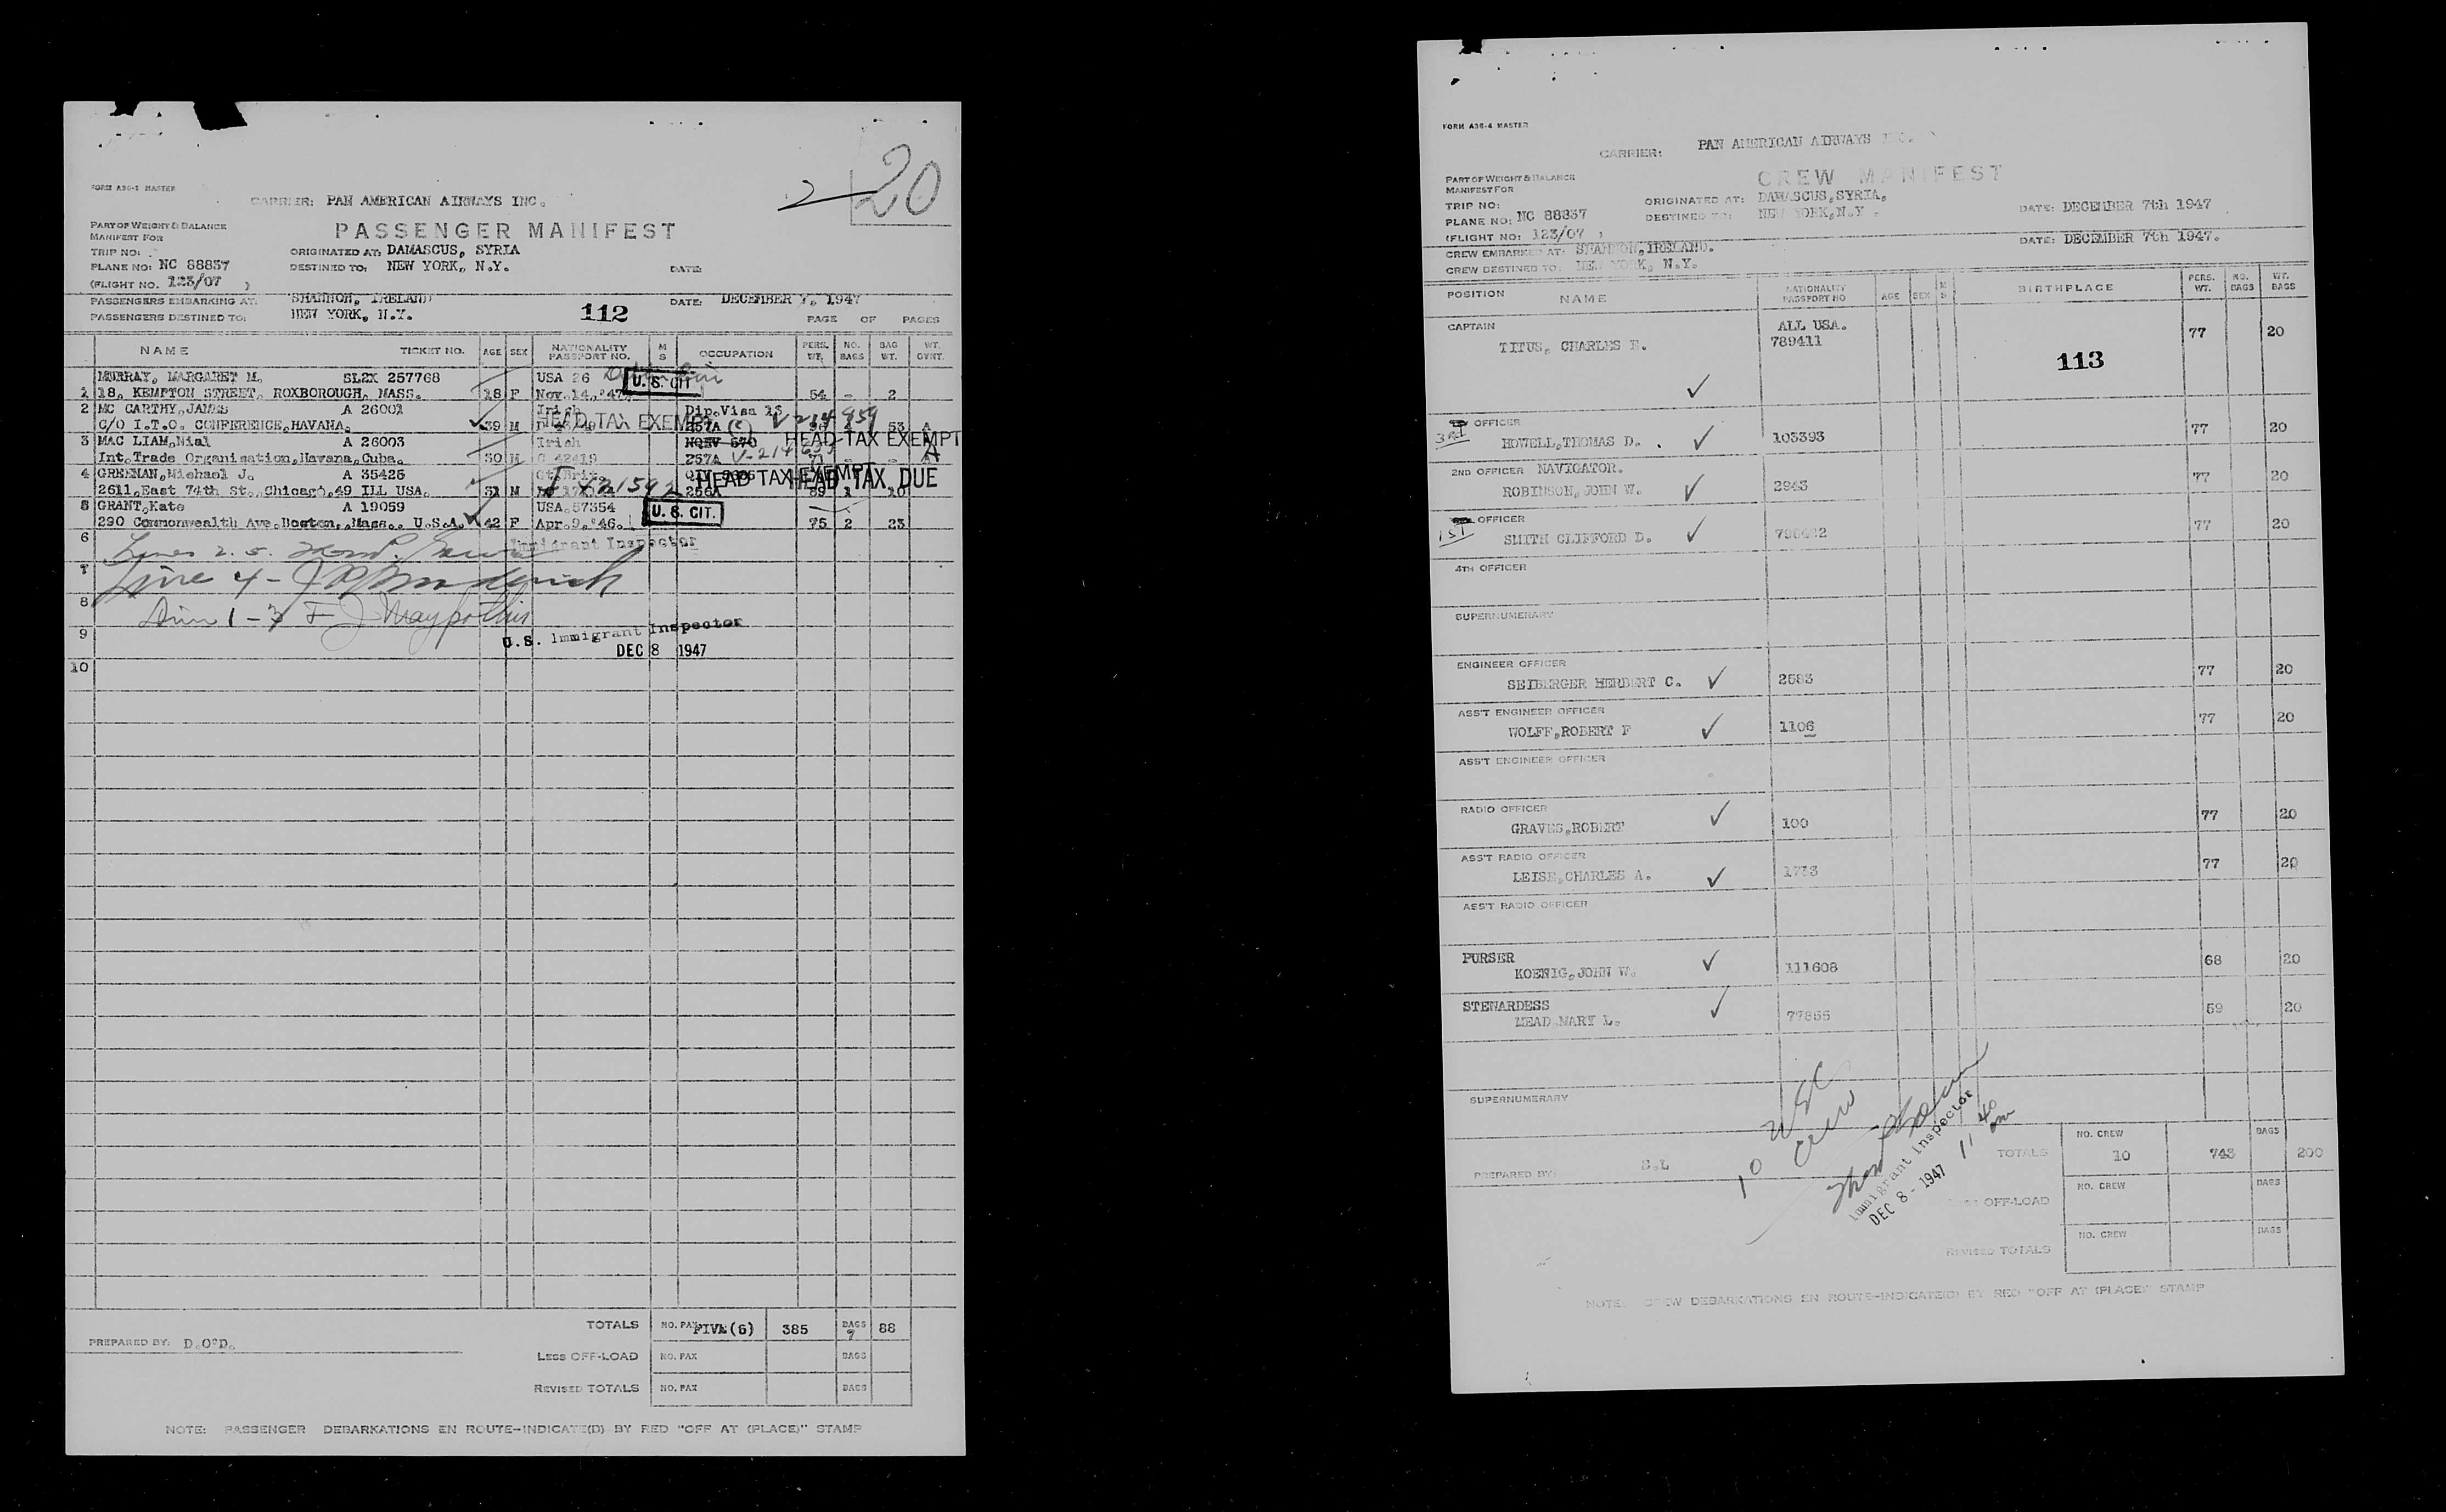 20
FORM A36-1 MASTER
CARRIER: PAN AMERICAN AIRWAYS INC.
PART OF WEIGHT & BALANCE
MANIFEST FOR
PASSENGER MANIFEST
TRIP NO:
ORIGINATED AT: DAMASCUS, SYRIA
PLANE NO: NC 88837
DESTINED TO: NEW YORK, N.Y.
DATE:
(FLIGHT NO. 123/07 )
PASSENGERS EMBARKING AT: SHANNON, IRELAND
DATE: DECEMBER 7, 1947
PASSENGERS DESTINED TO: NEW YORK, N.Y.
112
PAGE OF PAGES
NAME TICKET NO. AGE SEX NATIONALITY PASSPORT NO. M S OCCUPATION PERS. WT. NO. BAGS BAG WT. WT. CYNT.
MURRAY, MARGARET M. SL2X 257768 USA 26 U.S. CIT
1 18, KEMPTON STREET, ROXBOROUGH, MASS. 18 F Nov.14,'47 54 - 2
2 MC CARTHY,JAMES A 26001 Irish Dip.Visa
C/O I.T.O. CONFERENCE,HAVANA. 39 M HEAD TAX EXEMPT 257A 53 A
3 MAC LIAM,Nial A 26003 Irish HEAD TAX EXEMPT
Int.Trade Organisation,Havana,Cuba. 30 M 257A 71 A
4 GREENAN,Michael J. A 35425 Gt.Brit. HEAD TAX EXEMPT HEAD TAX DUE
2611,East 74th St.,Chicago,49 ILL USA. 31 M 256A 89 1 10
5 GRANT,Kate A 19059 USA.57354 U. S. CIT.
290 Commonwealth Ave.Boston,.Mass.. U.S.A. 42 F Apr.9,'46. 75 2 23
6 Immigrant Inspector
7 Line 4 -
8
9
U.S. Immigrant Inspector
DEC 8 1947
10
TOTALS NO. PAX FIVE(5) 385 BAGS 7 88
PREPARED BY: D.O'D.
LESS OFF-LOAD NO. PAX BAGS
REVISED TOTALS NO. PAX BAGS
NOTE: PASSENGER DEBARKATIONS EN ROUTE-INDICATE(D) BY RED "OFF AT (PLACE)" STAMP
FORM A36-4 MASTER
CARRIER: PAN AMERICAN AIRWAYS INC.
CREW MANIFEST
PART OF WEIGHT & BALANCE
MANIFEST FOR
TRIP NO:
ORIGINATED AT: DAMASCUS,SYRIA,
DATE: DECEMBER 7th 1947
PLANE NO: NC 88837
DESTINED TO: NEW YORK,N.Y .
(FLIGHT NO: 123/07 )
CREW EMBARKED AT: SHANNON,IRELAND.
DATE: DECEMBER 7th 1947.
CREW DESTINED TO: NEW YORK, N.Y.
POSITION NAME NATIONALITY PASSPORT NO AGE SEX M S BIRTHPLACE PERS. WT. NO. BAGS WT. BAGS
CAPTAIN ALL USA. 77 20
TITUS, CHARLES E. 789411
113
3RD OFFICER 77 20
HOWELL,THOMAS D. . 103393
2ND OFFICER NAVIGATOR. 77 20
ROBINSON,JOHN W. 2943
1ST OFFICER 77 20
SMITH CLIFFORD D.
4TH OFFICER
SUPERNUMERARY
ENGINEER OFFICER 77 20
SEIBERGER HERBERT C. 2583
ASS'T ENGINEER OFFICER 77 20
WOLFF,ROBERT F 1106
ASS'T ENGINEER OFFICER
RADIO OFFICER 77 20
GRAVES,ROBERT 100
ASS'T RADIO OFFICER 77 20
LEISE,CHARLES A. 1733
ASS'T RADIO OFFICER
PURSER 68 20
KOENIG,JOHN W. 111608
STEWARDESS 59 20
MEAD,MARY L. 77855
SUPERNUMERARY
10 USC
Crew
Immigrant Inspector
DEC 8 - 1947
11 40
PREPARED BY: S.L
TOTALS NO. CREW 10 743 BAGS 200
LESS OFF-LOAD NO. CREW BAGS
REVISED TOTALS NO. CREW BAGS
NOTE: CREW DEBARKATIONS EN ROUTE-INDICATE(D) BY RED "OFF AT (PLACE)" STAMP